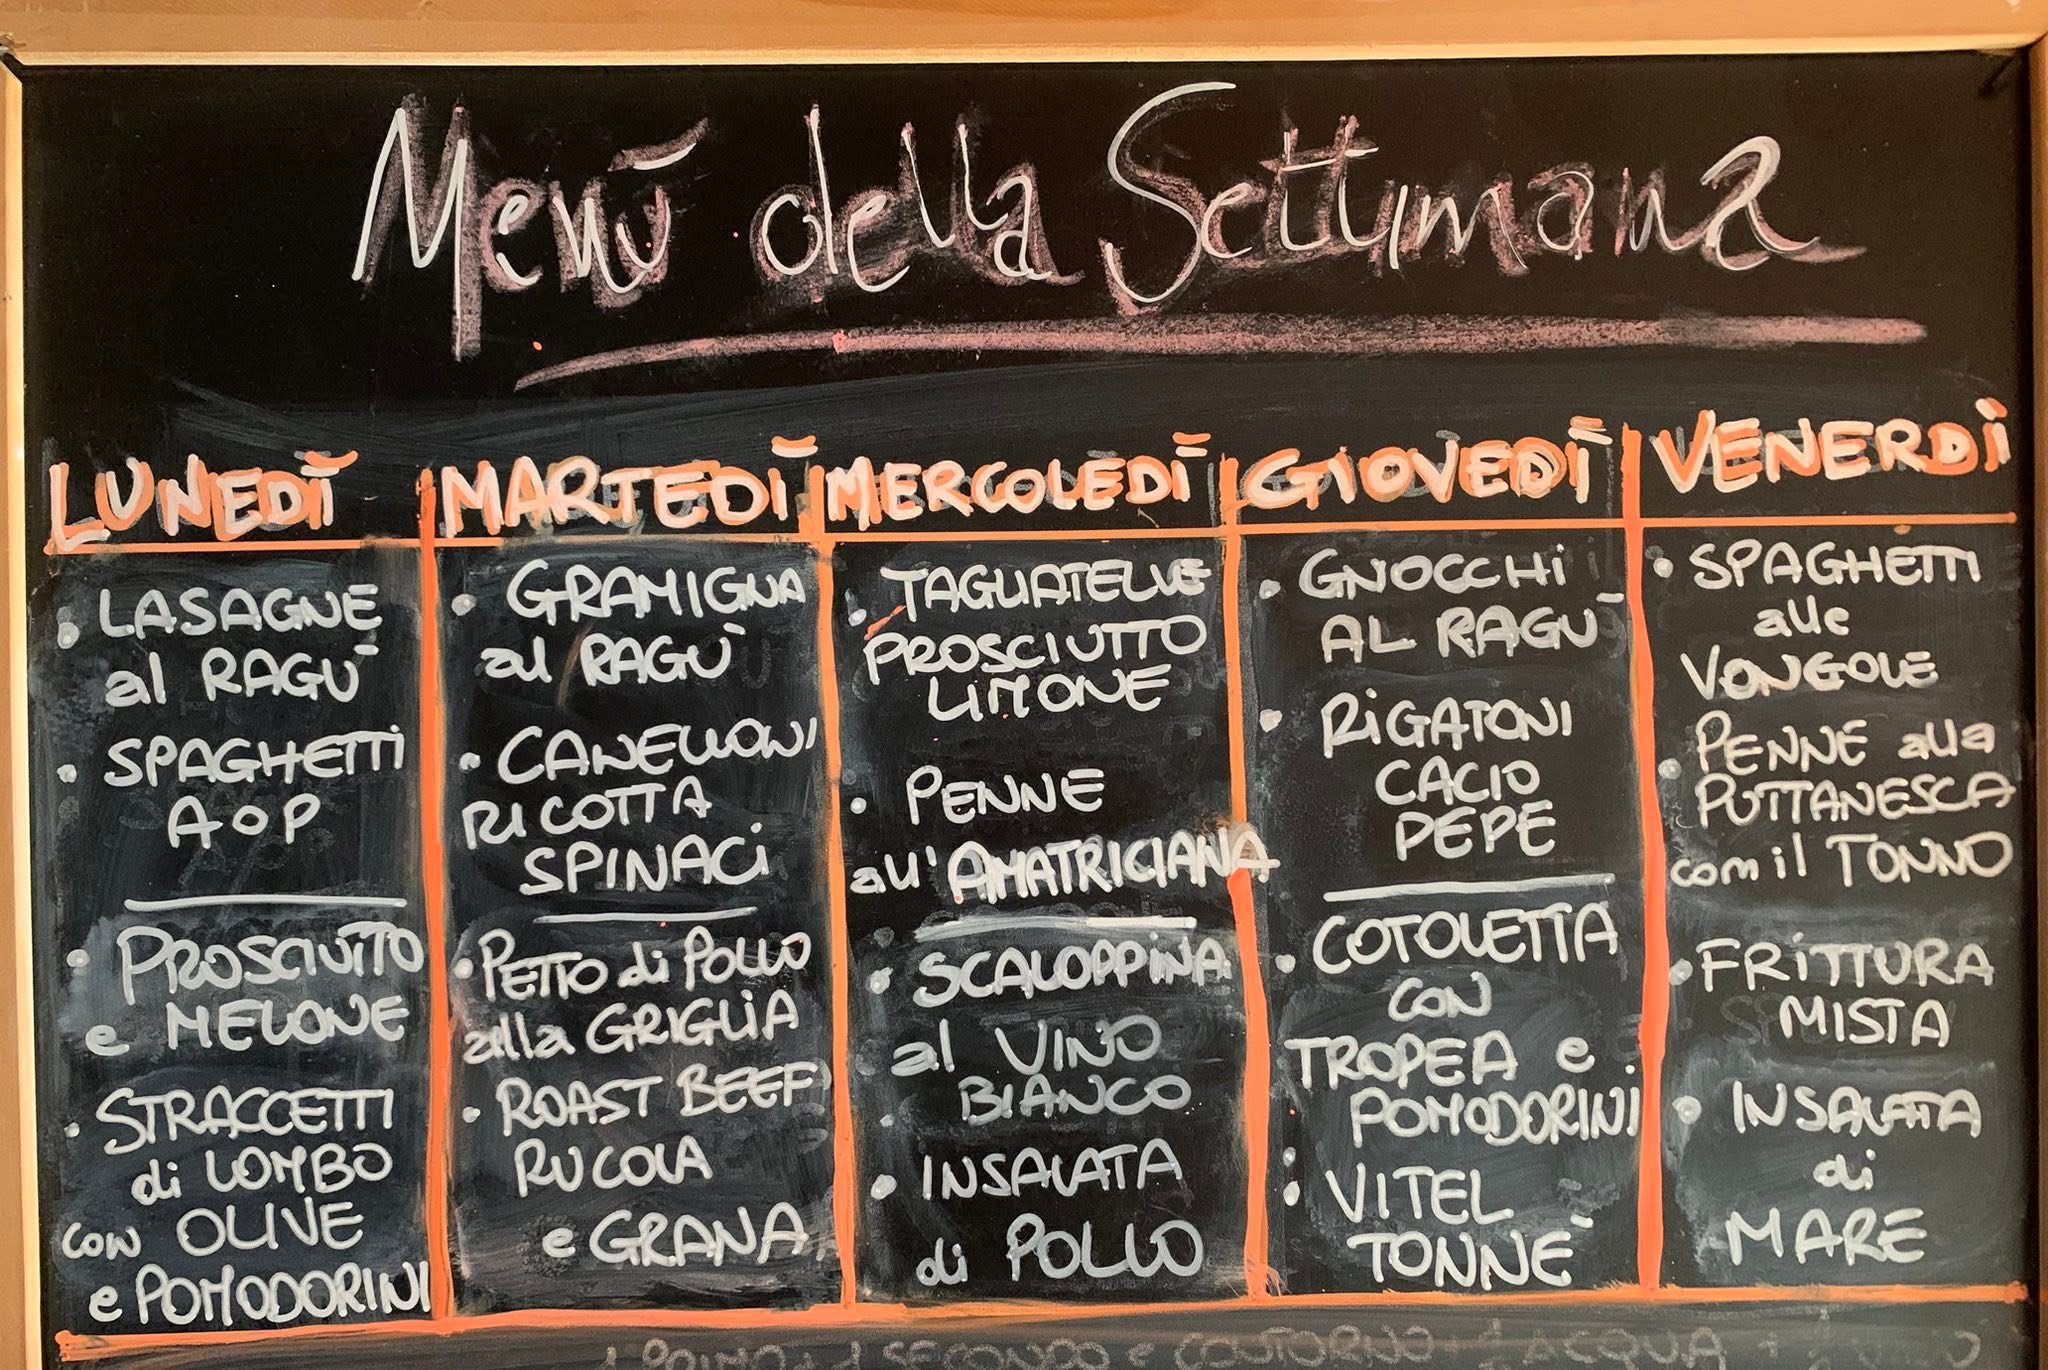 Menù della Settimana
LUNEDÌ
LASAGNE
al RAGÙ
SPAGHETTI
AOP
PROSCIUTTO
e MELONE
STRACCETTI
di LOMBO
con OLIVE
e POMODORINI
MARTEDÌ
GRAMIGNA
al RAGÙ
CANELLONI
RICOTTA
SPINACI
PETTO di POLLO
alla GRIGLIA
ROAST BEEF
RUCOLA
e GRANA
MERCOLEDÌ
TAGLIATELLE
PROSCIUTTO
LIMONE
PENNE
all'AMATRICIANA
SCALOPPINA
al VINO
BIANCO
INSALATA
di POLLO
GIOVEDÌ
GNOCCHI
AL RAGÙ
RIGATONI
CACIO
PEPE
COTOLETTA
CON
TROPEA e
POMODORINI
VITEL
TONNÈ
VENERDÌ
SPAGHETTI
alle
VONGOLE
PENNE alla
PUTTANESCA
con il TONNO
FRITTURA
MISTA
INSALATA
di
MARE
1 PRIMO + 1 SECONDO e CONTORNO + ACQUA +